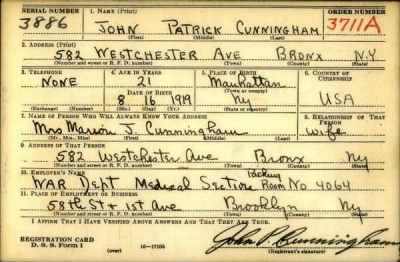 SERIAL NUMBER 1. NAME (Print) ORDER NUMBER
3886 JOHN PATRICK CUNNINGHAM 3711A
(First) (Middle) (Last)
2. ADDRESS (Print)
582 WESTCHESTER AVE BRONX N.Y
(Number and street or R. F. D. number) (Town) (County) (State)
3. TELEPHONE 4. AGE IN YEARS 5. PLACE OF BIRTH 6. COUNTRY OF CITIZENSHIP
NONE 21 Manhattan
DATE OF BIRTH (Town or county)
8 16 1919 Ny USA
(Exchange) (No.) (Mo.) (Day) (Yr.) (State or country)
7. NAME OF PERSON WHO WILL ALWAYS KNOW YOUR ADDRESS 8. RELATIONSHIP OF THAT PERSON
Mrs Marion J. Cunningham wife
(Mr., Mrs., Miss) (First) (Middle) (Last)
9. ADDRESS OF THAT PERSON
582 Westchester Ave Bronx Ny
(Number and street or R. F. D. number) (Town) (County) (State)
10. EMPLOYER'S NAME
WAR Dept Medical Section Room No 4064
11. PLACE OF EMPLOYMENT OR BUSINESS
58th St & 1st Ave Brooklyn Ny
(Number and street or R. F. D. number) (Town) (County) (State)
I AFFIRM THAT I HAVE VERIFIED ABOVE ANSWERS AND THAT THEY ARE TRUE.
REGISTRATION CARD
D. S. S. FORM 1 (over) 16-17105 John P. Cunningham
(Registrant's signature)